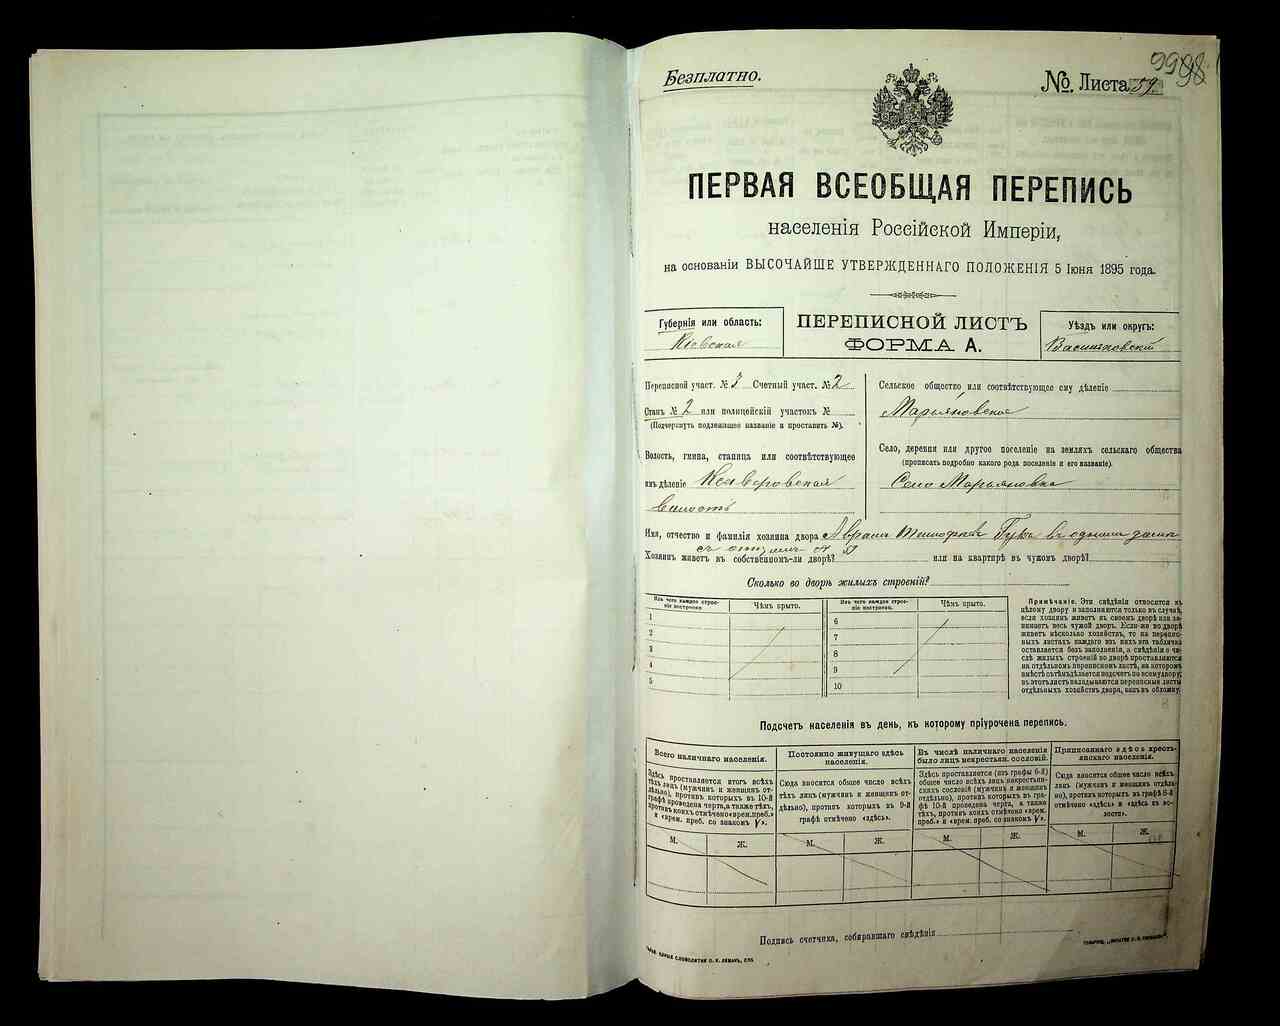 Безплатно.
№. Листа 59.
9998
ПЕРВАЯ ВСЕОБЩАЯ ПЕРЕПИСЬ
населенія Россійской Имперіи,
на основаніи ВЫСОЧАЙШЕ УТВЕРЖДЕННАГО ПОЛОЖЕНІЯ 5 Іюня 1895 года.
Губернія или область:
Кіевская
ПЕРЕПИСНОЙ ЛИСТЪ
ФОРМА А.
Уѣздъ или округъ:
Васильковскій
Переписной участ. № 3 Счетный участ. № 2
Станъ № 2 или полицейскій участокъ №
(Подчеркнуть подлежащее названіе и проставить №).
Волость, гмина, станица или соотвѣтствующее
имъ дѣленіе Ксаверовская
волость
Сельское общество или соотвѣтствующее ему дѣленіе
Марьяновское
Село, деревня или другое поселеніе на земляхъ сельскаго общества
(прописать подробно какого рода поселеніе и его названіе).
Село Марьяновка
Имя, отчество и фамилія хозяина двора въ одномъ домѣ
съ
Хозяинъ живетъ въ собственномъ-ли дворѣ? или на квартирѣ въ чужомъ дворѣ?
Сколько во дворѣ жилыхъ строеній?
Изъ чего каждое строе-
ніе построено.
Чѣмъ крыто.
1
2
3
4
5
Изъ чего каждое строе-
ніе построено.
Чѣмъ крыто.
6
7
8
9
10
Примѣчаніе. Эти свѣдѣнія относятся къ
цѣлому двору и заполняются только въ случаѣ,
если хозяинъ живетъ въ своемъ дворѣ или за-
нимаетъ весь чужой дворъ. Если-же во дворѣ
живетъ нѣсколько хозяйствъ, то на перепис-
ныхъ листахъ каждаго изъ нихъ эта табличка
оставляется безъ заполненія, а свѣдѣнія о чи-
слѣ жилыхъ строеній во дворѣ проставляются
на отдѣльномъ переписномъ листѣ, на которомъ
вмѣстѣ съ тѣмъ дѣлается подсчетъ по всему двору;
въ этотъ листъ вкладываются переписные листы
отдѣльныхъ хозяйствъ двора, какъ въ обложку.
Подсчетъ населенія въ день, къ которому пріурочена перепись.
Всего наличнаго населенія.
Здѣсь проставляется итогъ всѣхъ
тѣхъ лицъ (мужчинъ и женщинъ от-
дѣльно), противъ которыхъ въ 10-й
графѣ проведена черта, а также тѣхъ,
противъ коихъ отмѣчено «врем. преб.»
и «врем. преб. со знакомъ V».
М.
Ж.
Постоянно живущаго здѣсь
населенія.
Сюда вносится общее число всѣхъ
тѣхъ лицъ (мужчинъ и женщинъ от-
дѣльно), противъ которыхъ въ 9-й
графѣ отмѣчено «здѣсь».
М.
Ж.
Въ числѣ наличнаго населенія
было лицъ некрестьян. сословій.
Здѣсь проставляется (изъ графы 6-й)
общее число всѣхъ лицъ некрестьян-
скихъ сословій (мужчинъ и женщинъ
отдѣльно), противъ которыхъ въ гра-
фѣ 10-й проведена черта, а также
тѣхъ, противъ коихъ отмѣчено «врем.
преб.» и «врем. преб. со знакомъ V».
М.
Ж.
Приписаннаго здѣсь кресть-
янскаго населенія.
Сюда вносится общее число всѣхъ
лицъ (мужчинъ и женщинъ отдѣль-
но), противъ которыхъ въ графѣ 8-й
отмѣчено «здѣсь» и «здѣсь въ во-
лости».
М.
Ж.
Подпись счетчика, собиравшаго свѣдѣнія